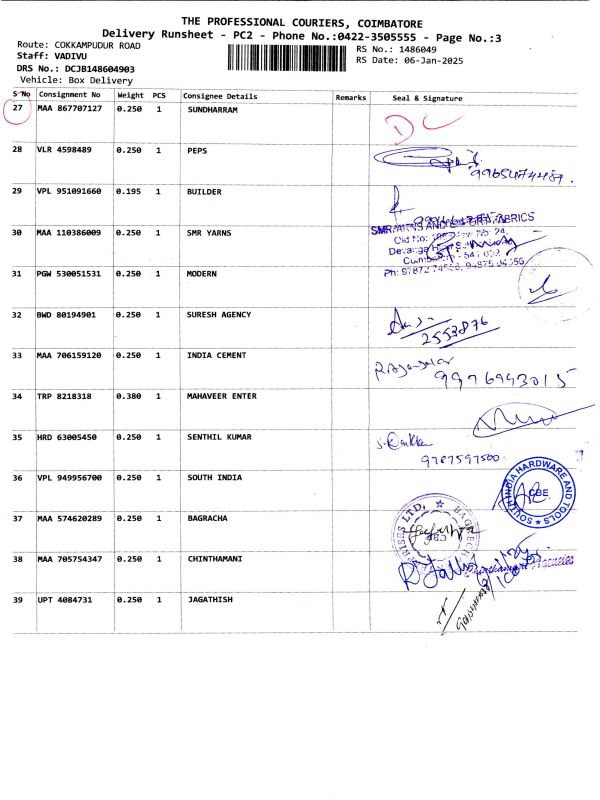 THE PROFESSIONAL COURIERS, COIMBATORE
Delivery Runsheet - PC2 - Phone No.:0422-3505555 - Page No.:3
Route: COKKAMPUDUR ROAD
RS No.: 1486049
Staff: VADIVU
RS Date: 06-Jan-2025
DRS No.: DCJB148604903
Vehicle: Box Delivery
S No Consignment No Weight PCS Consignee Details Remarks Seal & Signature
27 MAA 867707127 0.250 1 SUNDHARRAM DC
28 VLR 4598489 0.250 1 PEPS
9965474487.
29 VPL 951091660 0.195 1 BUILDER
30 MAA 110386009 0.250 1 SMR YARNS
31 PGW 530051531 0.250 1 MODERN
32 BWD 80194901 0.250 1 SURESH AGENCY
2553876
33 MAA 706159120 0.250 1 INDIA CEMENT
9976943015
34 TRP 8218318 0.380 1 MAHAVEER ENTER
35 HRD 63005450 0.250 1 SENTHIL KUMAR
9787597500
36 VPL 949956700 0.250 1 SOUTH INDIA
SOUTH INDIA HARDWARE AND TOOLS
CBE.
37 MAA 574620289 0.250 1 BAGRACHA
CBE
38 MAA 705754347 0.250 1 CHINTHAMANI
Agencies
39 UPT 4084731 0.250 1 JAGATHISH